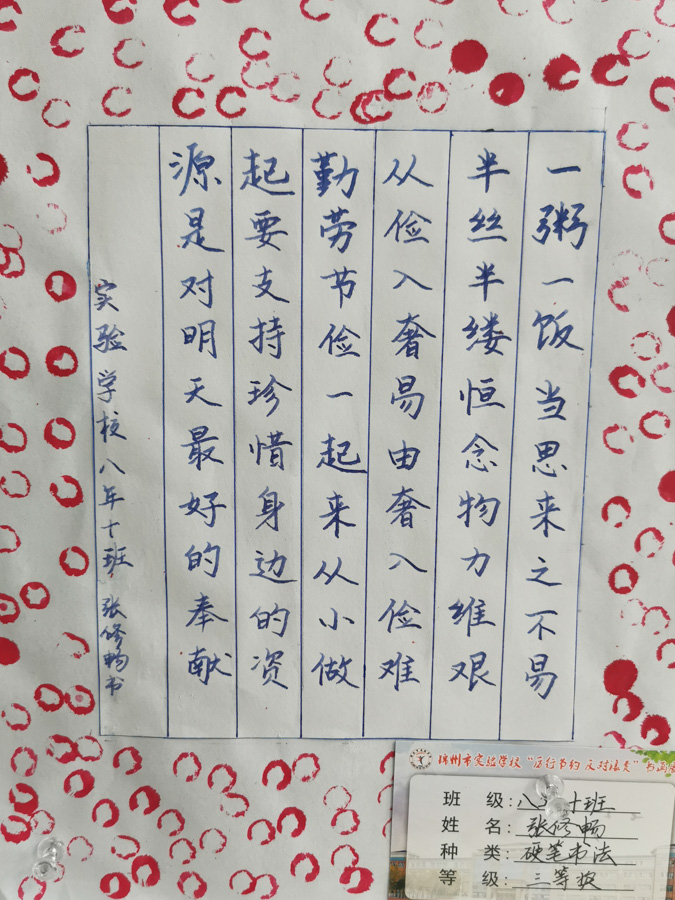 一粥一饭当思来之不易
半丝半缕恒念物力维艰
从俭入奢易由奢入俭难
勤劳节俭一起来从小做
起要支持珍惜身边的资
源是对明天最好的奉献
实验学校八年十班 张修畅书
锦州市实验学校“厉行节约 反对浪费”书画
班 级:八 十班
姓 名:张修畅
种 类:硬笔书法
等 级:三等奖